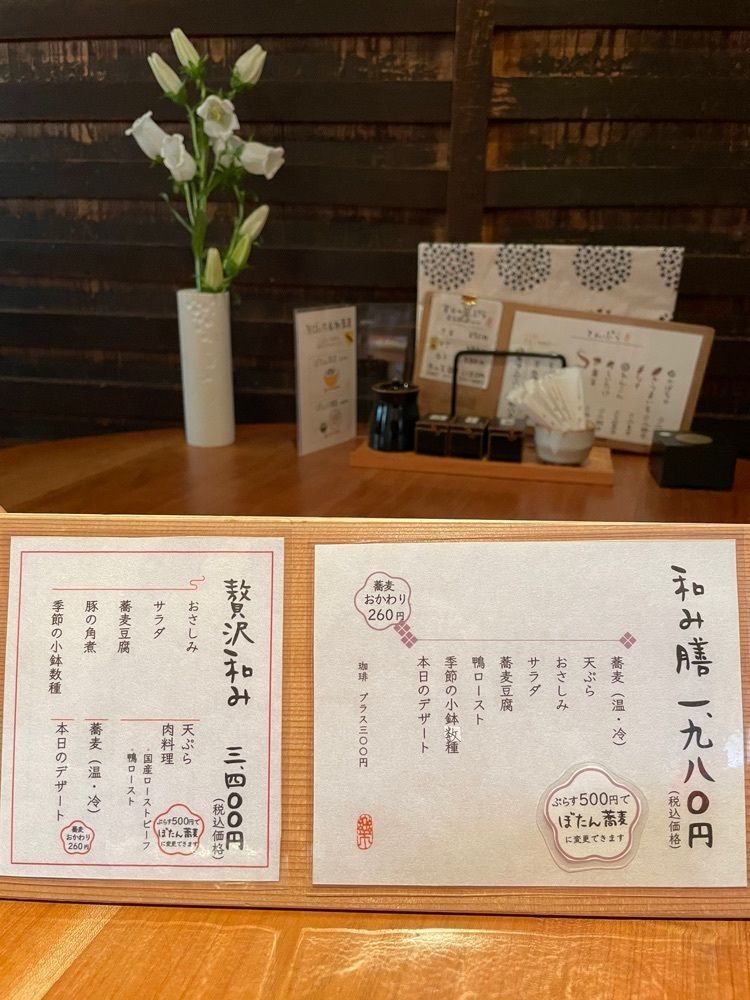 てんぷら
和み膳 一、九八〇円
(税込価格)
蕎麦（温・冷）
天ぷら
おさしみ
サラダ
蕎麦豆腐
鴨ロースト
季節の小鉢数種
本日のデザート
珈琲 プラス三〇〇円
蕎麦
おかわり
260円
ぷらす500円で
ぼたん蕎麦
に変更できます
贅沢和み 三、四〇〇円
(税込価格)
おさしみ
サラダ
蕎麦豆腐
豚の角煮
季節の小鉢数種
天ぷら
肉料理
・国産ローストビーフ
・鴨ロースト
蕎麦（温・冷）
本日のデザート
ぷらす500円で
ぼたん蕎麦
に変更できます
蕎麦
おかわり
260円